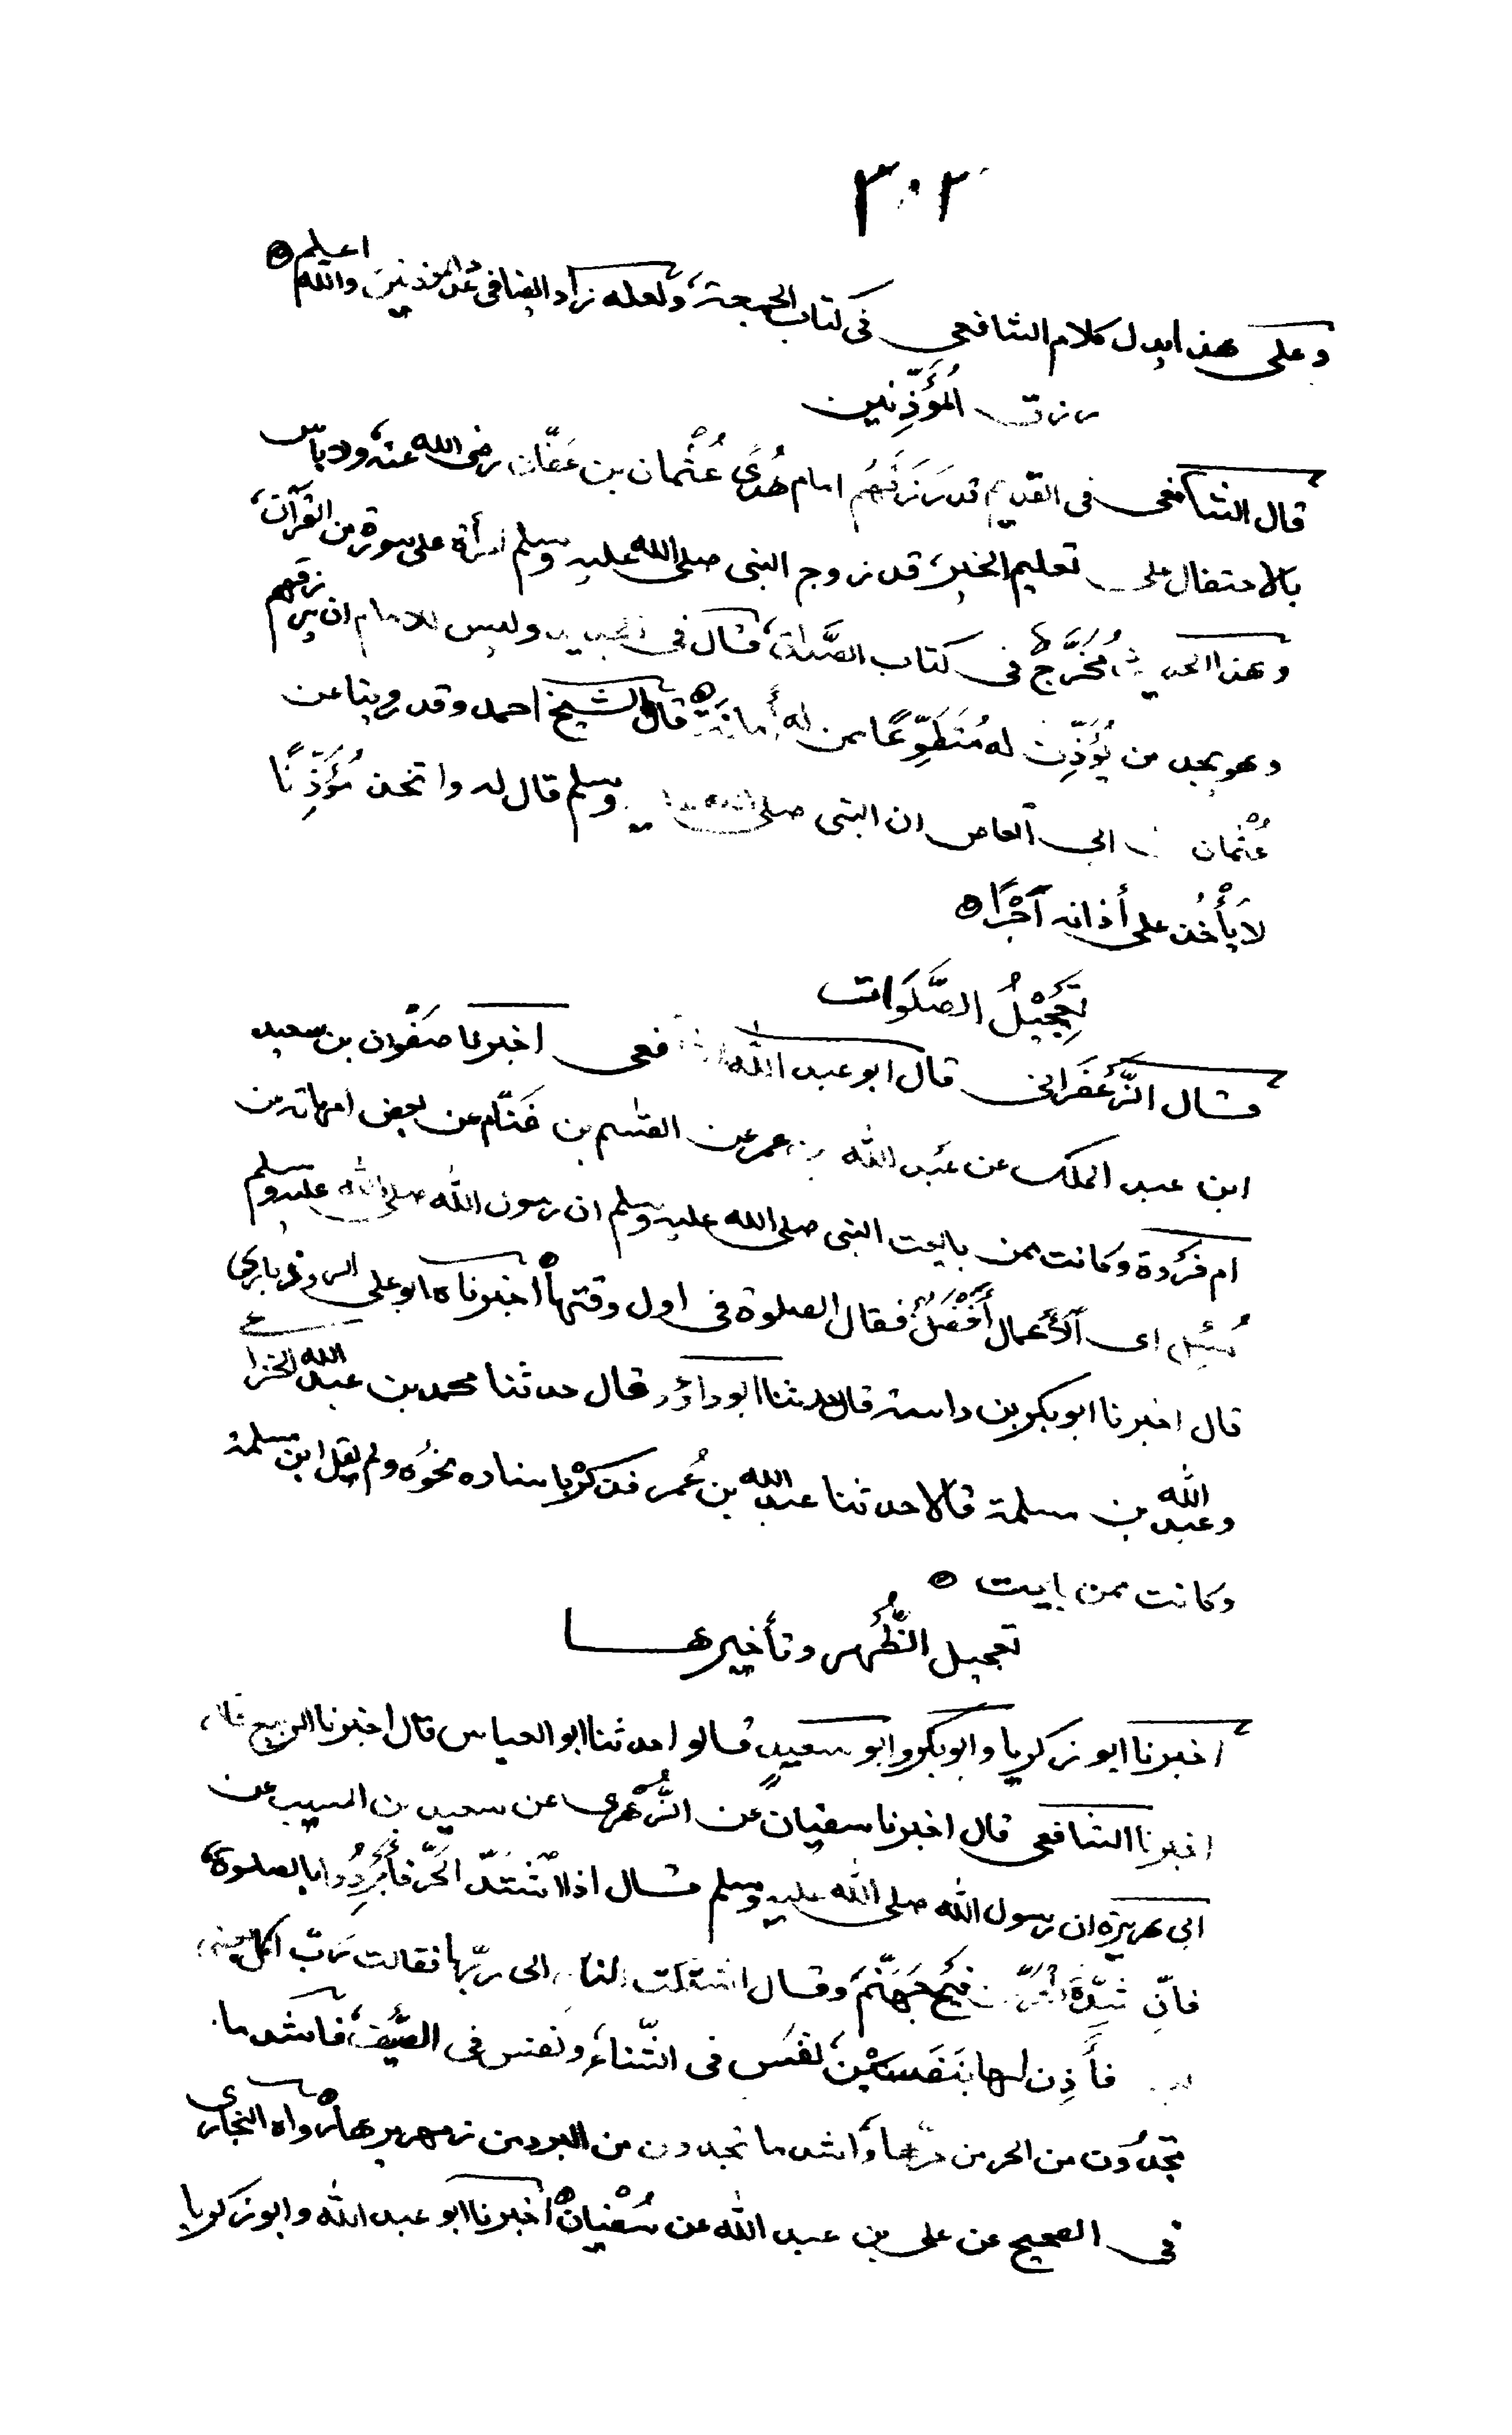 ٣٠٢
وعلى هذا يدل كلام الشافعي في كتاب الجمعة، ولعله زاد ايضا في عدد المؤذنين والله اعلم
رزق المُؤَذِّنين
قال الشافعي في القديم قد رَزَقَهُم امام هُدىً عُثْمان بن عَفّان رضي الله عنه، ولا باس
بالاحتفال على تعليم الخير، قد زوج النبي صلى الله عليه وسلم امرأة على سورة من القرآن،
وهذا الحديث مُخَرَّجٌ في كتاب الصَّداق، قال في وليس للامام ان يرزقهم
وهو يجد من يُؤَذِّن له مُتَطَوِّعًا ممن له أمانة قال الشيخ احمد وقد روينا عن
عُثْمان بن ابي العاص ان النبي صلى الله عليه وسلم قال له واتخذ مُؤَذِّنًا
لا يَأْخُذ على أذانه أَجْرًا
تَعْجِيْلُ الصَّلَوَات
قال الزَّعْفَراني قال ابو عبد الله الشافعي اخبرنا صَفْوان بن سعيد
ابن عبد الملك عن عَبد الله بن عمر عن القسم بن غَنّام عن بعض امهاته من
ام فَرْوَة وكانت ممن بايعت النبي صلى الله عليه وسلم ان رسول الله صلى الله عليه وسلم
سُئِل اي الأعمال أَفْضَل فقال الصلوة في اول وقتها اخبرناه ابو علي الروذباري
قال اخبرنا ابو بكر بن داسة قال حدثنا ابو داؤد قال حدثنا محمد بن عبد الله الخزاعي
وعبد الله بن مسلمة قالا حدثنا عبد الله بن عُمر فذكرْ باسناده نحْوَه ولم يقل ابن مسلمة
وكانت ممن بايعت
تعجيل الظُّهر وتأخيرها
اخبرنا ابو زكريا وابو بكر وابو سعيدٍ قالوا حدثنا ابو العباس قال اخبرنا الربيع قال
اخبرنا الشافعي قال اخبرنا سفيان عن الزُّهْري عن سعيد بن المسيب عن
ابي هريرة ان رسول الله صلى الله عليه وسلم قال اذا اشْتَدّ الحَرّ فأَبْرِدُوا بالصلوة،
فاِنّ شِدّةَ الحَرّ من فَيْح جَهَنّمَ وقال اشتكت النار الى ربّها فقالت رَبّ اكل بعضي
فأَذِن لها بنَفَسَيْن، نفَس في الشّتاء، ونفس في الصَّيْف، فاشد ما
تجدُون من الحر من حرّها وأشد ما تجدون من البرد من زمهريرها رواه البخاري
في الصحيح عن علي بن عبد الله عن سُفْيان اخبرنا ابو عبد الله وابو زكريا